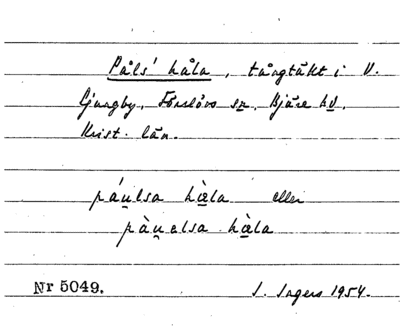 Påls' håla, tångtäkt i V.
Ljungby, Förslövs sn. Bjäre hd.
Krist. län.
páu̯lsa hàla eller
pàu̯alsa hàla
Nr 5049. I. Ingers 1954.